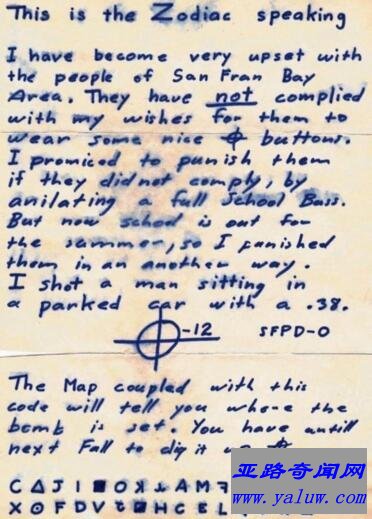 This is the Zodiac speaking
I have become very upset with
the people of San Fran Bay
Area. They have not complied
with my wishes for them to
wear some nice ⌖ buttons.
I promiced to punish them
if they did not comply, by
anilating a full School Buss.
But now school is out for
the summer, so I punished
them in an another way.
I shot a man sitting in
a parked car with a .38.
⌖-12 SFPD-0
The Map coupled with this
code will tell you where the
bomb is set. You have untill
next Fall to dig it up. ⌖
C Δ J I ■ O A M
X F D V H C E L
亚路奇闻网
www.yaluw.com